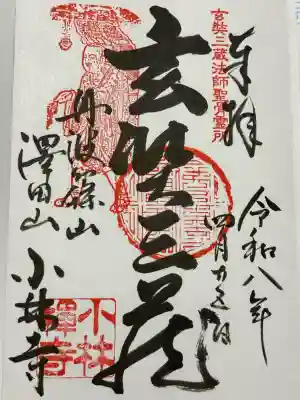 奉拝
玄奘三蔵法師聖骨霊所
令和八年
四月廿五日
玄奘三蔵
丹波篠山
澤田山
小林寺
小林
禪寺